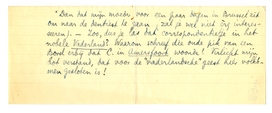 "Dan dat mijn moeder, voor een paar dagen in Brussel zit
om naar de dentiste te gaan, zal je wel niet erg interes-
seren). — Zoo, dus je las dat correspondentietje in het
nobele Vaderland? Waarom schreef die oude pik van een
Borel erbij dat C. in Amersfoort woonde! Verlicht mij
het verstand, dat voor de "vaderlandsche" geest hier
gesloten is!